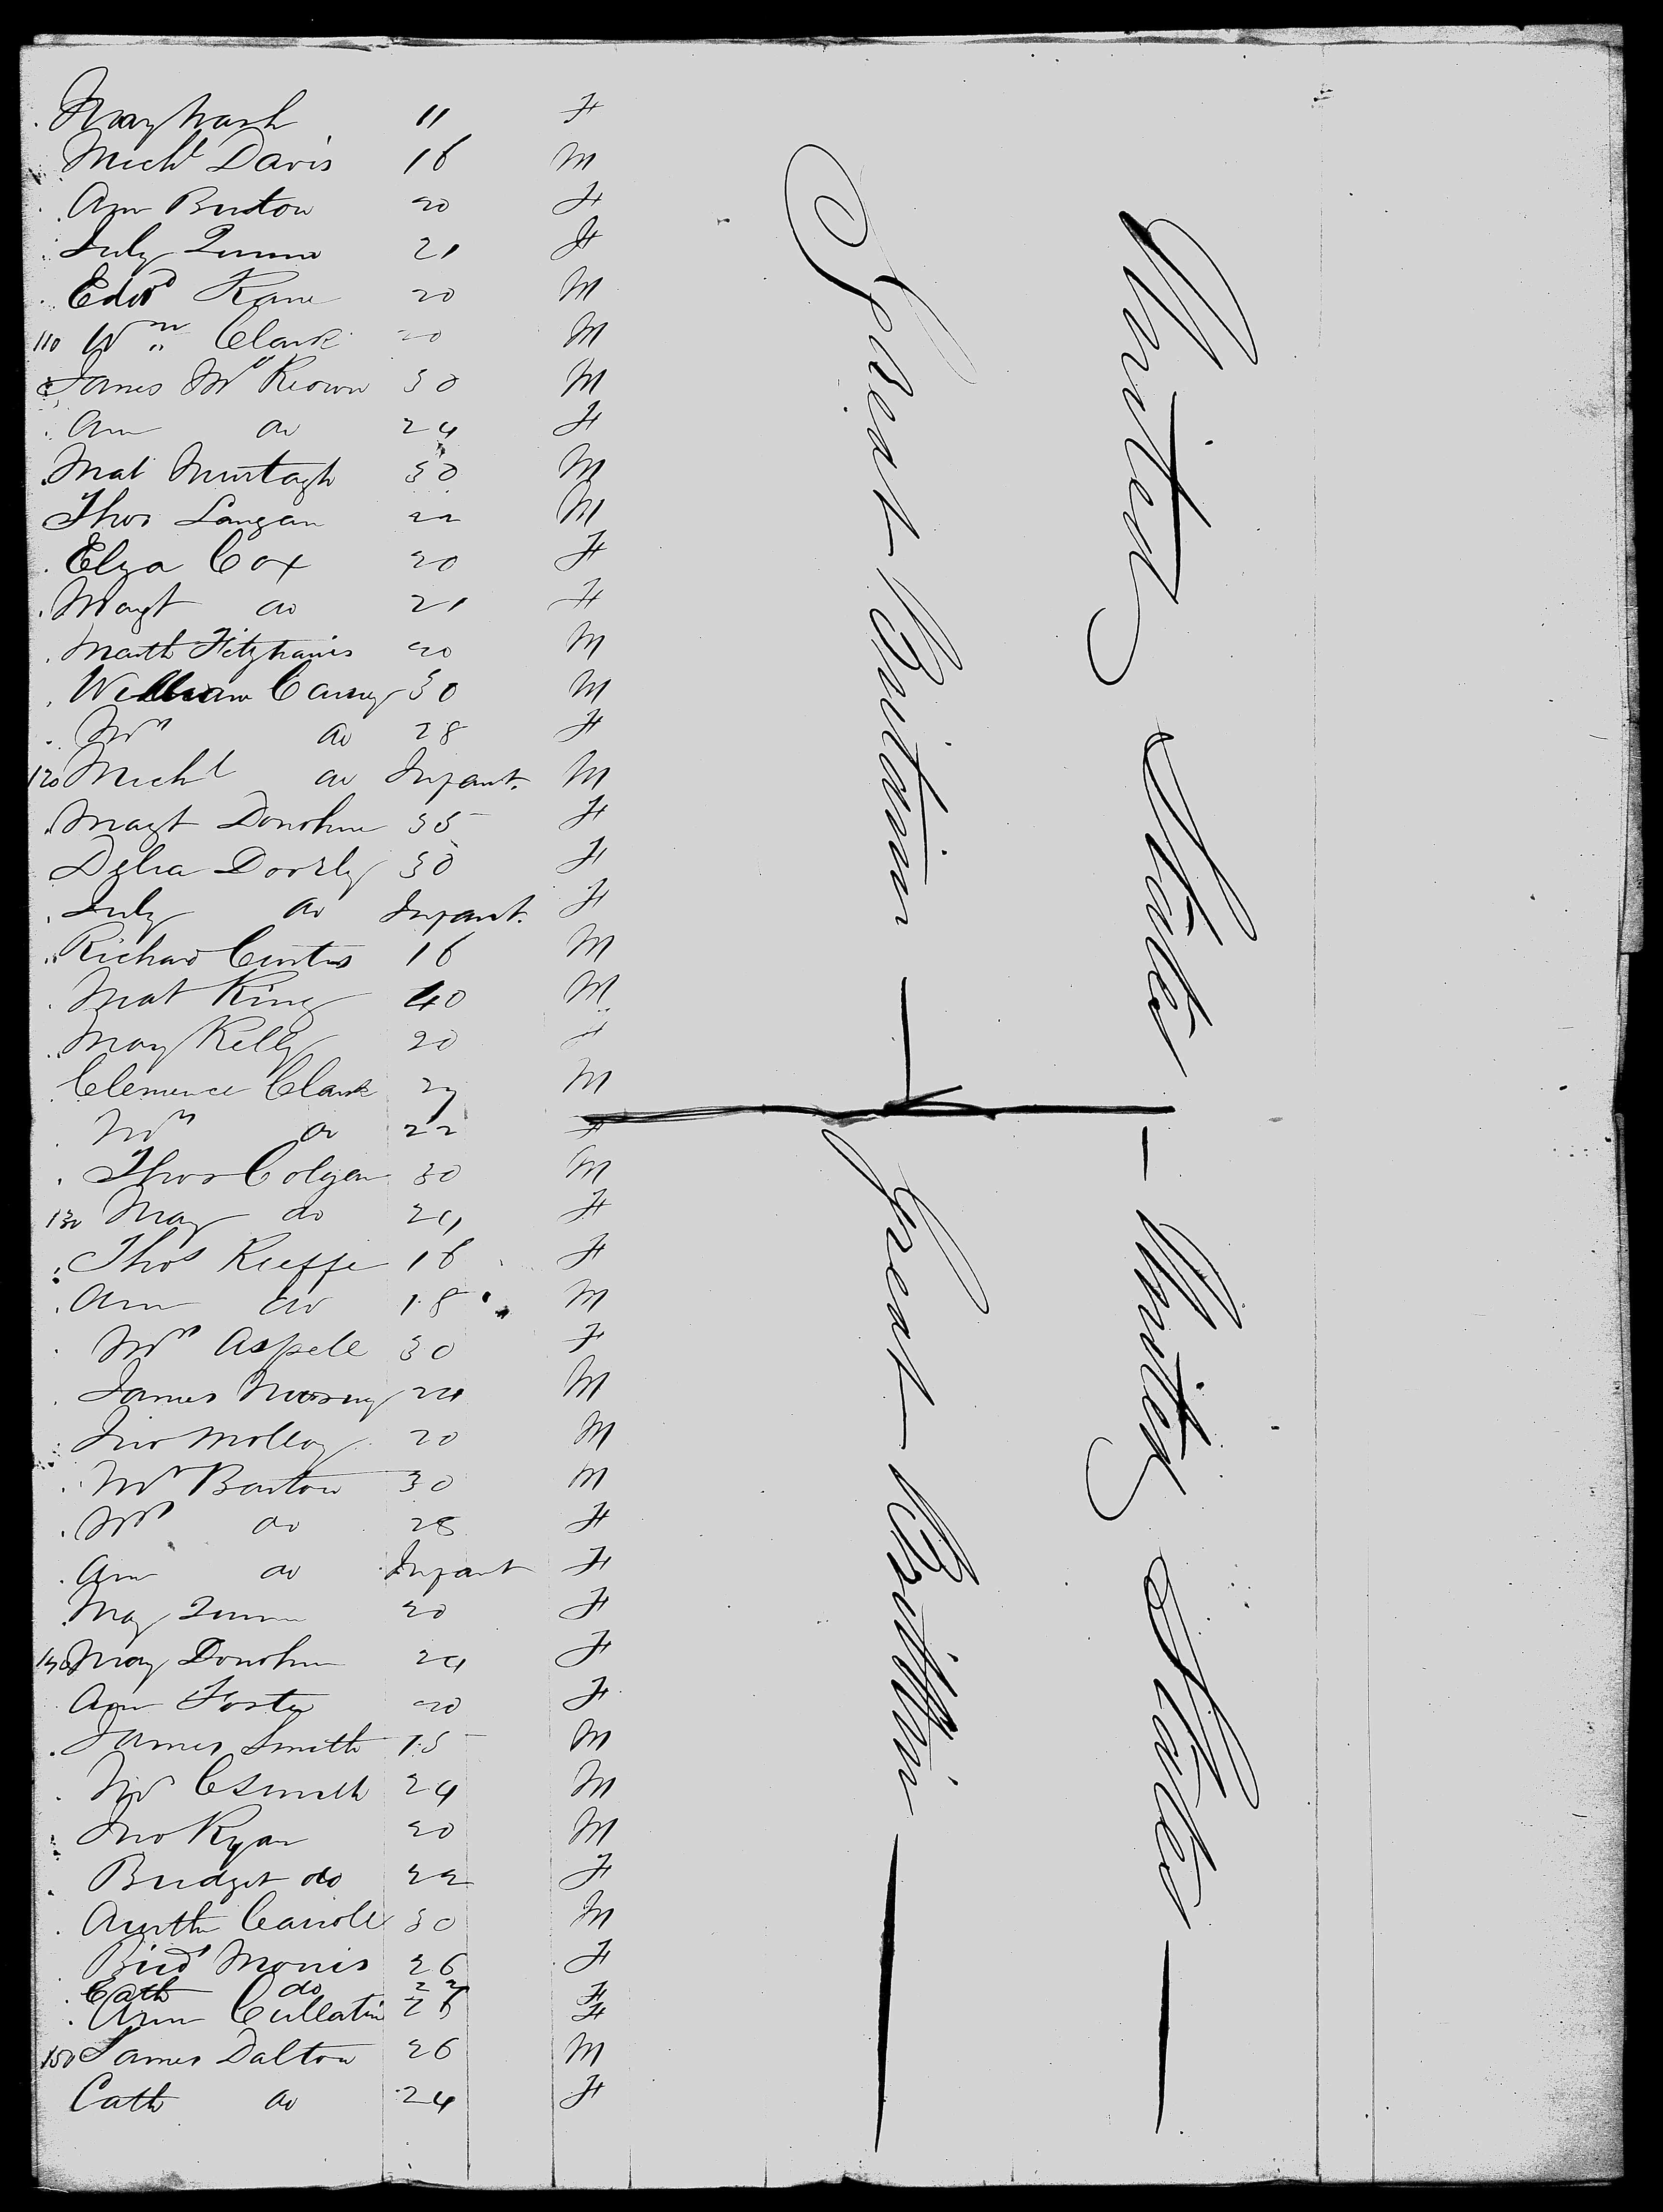 Mary Nash 11 F
Michl Davis 16 M
Ann Burton 20 F
July Quinn 21 F
Edwd Kane 20 M
110 Wm Clark 20 M
James McKeown 30 M
Ann do 24 F
Mat Murtagh 30 M
Thos Langan 22 M
Elza Cox 20 F
Magt do 21 F
Math Fitzharris 20 M
William Carney 30 M
Mrs do 28 F
120 Michl do Infant. M
Magt Donohue 35 F
Delia Doorly 30 F
July do Infant. F
Richard Curtis 16 M
Mat King 40 M
Mary Kelly 20 F
Clemence Clark 27 M
Mrs do 22 F
Thos Colgan 30 M
130 Mary do 24 F
Thos Kieffe 16 F
Ann do 18 M
Mrs Aspell 30 F
James 24 M
Jno Molloy 20 M
Mr Barton 30 M
Mrs do 28 F
Ann do Infant F
May Quinn 20 F
140 Mary Donohue 24 F
Ann Foster 20 F
James Smith 15 M
Mr C Smith 24 M
Jno Ryan 20 M
Bridget do 22 F
Arthur Carroll 30 M
Bird Morris 26 F
Cath do 22 F
Ann Cullatin 26 F
150 James Dalton 26 M
Cath do 24 F
Great Britain — Great Brittain —
United States — United States —